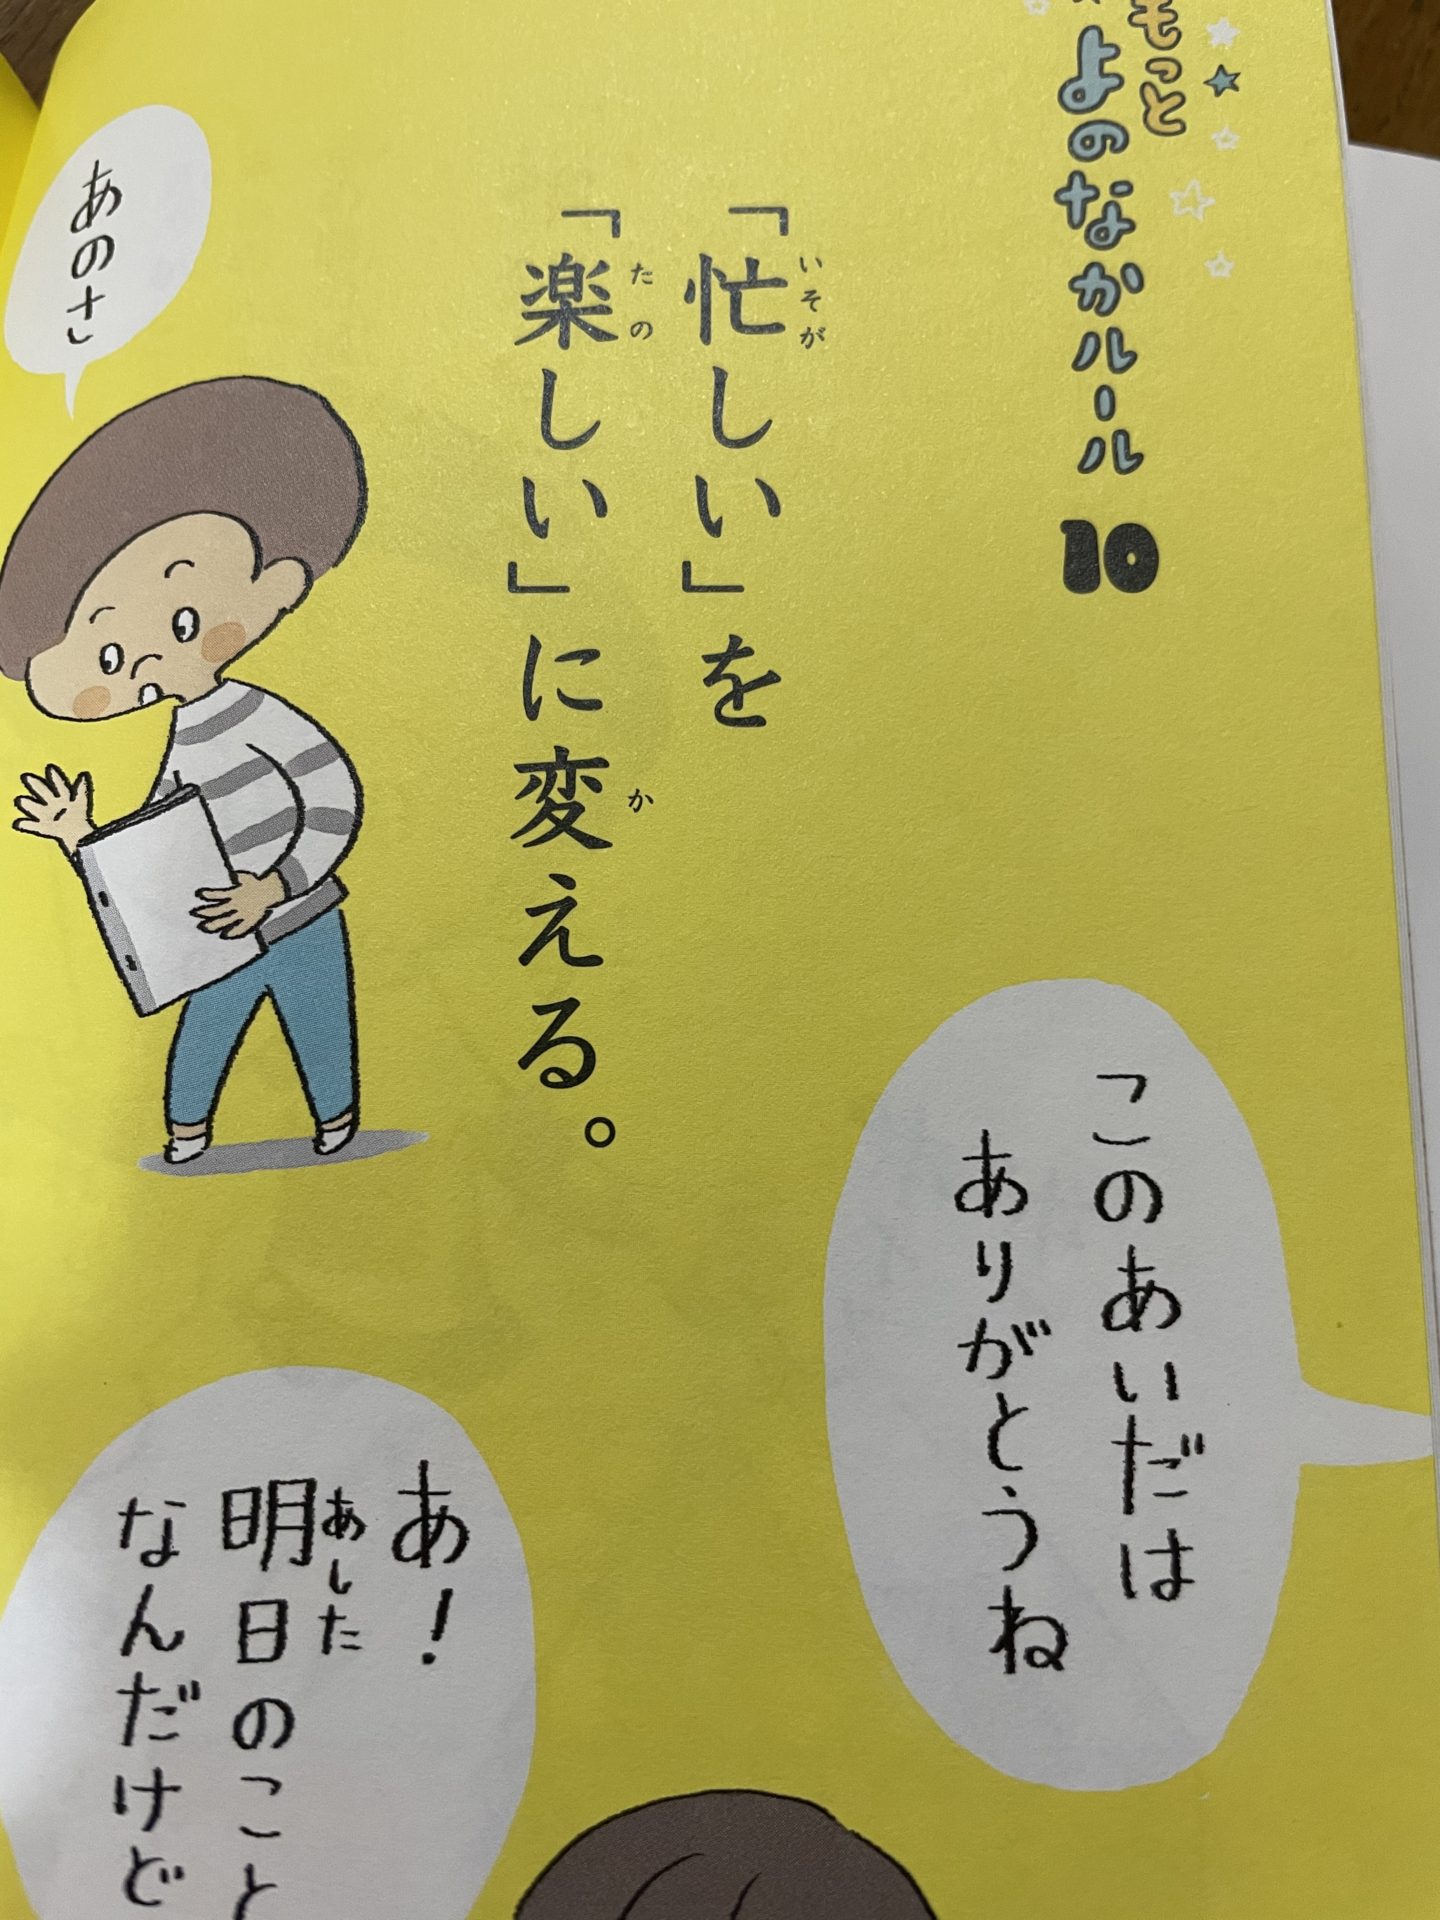 もっと
よのなかルール
10
「忙しい」を
いそが
「楽しい」に変える。
たの
か
あのさ
このあいだは
ありがとうね
あ！
明日のこと
あした
なんだけど